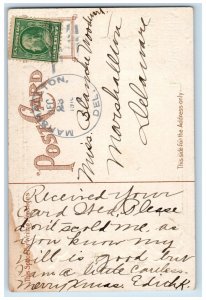 POST CARD
MARSHALLTON,
DEC
23
DEL.
Miss Blanche
Marshallton
Delaware
This side for the Address only
Received your
Card Wed, Please
don't scold me, as
you know my
will is good but
am a little careless.
Merry Xmas. Edith K.